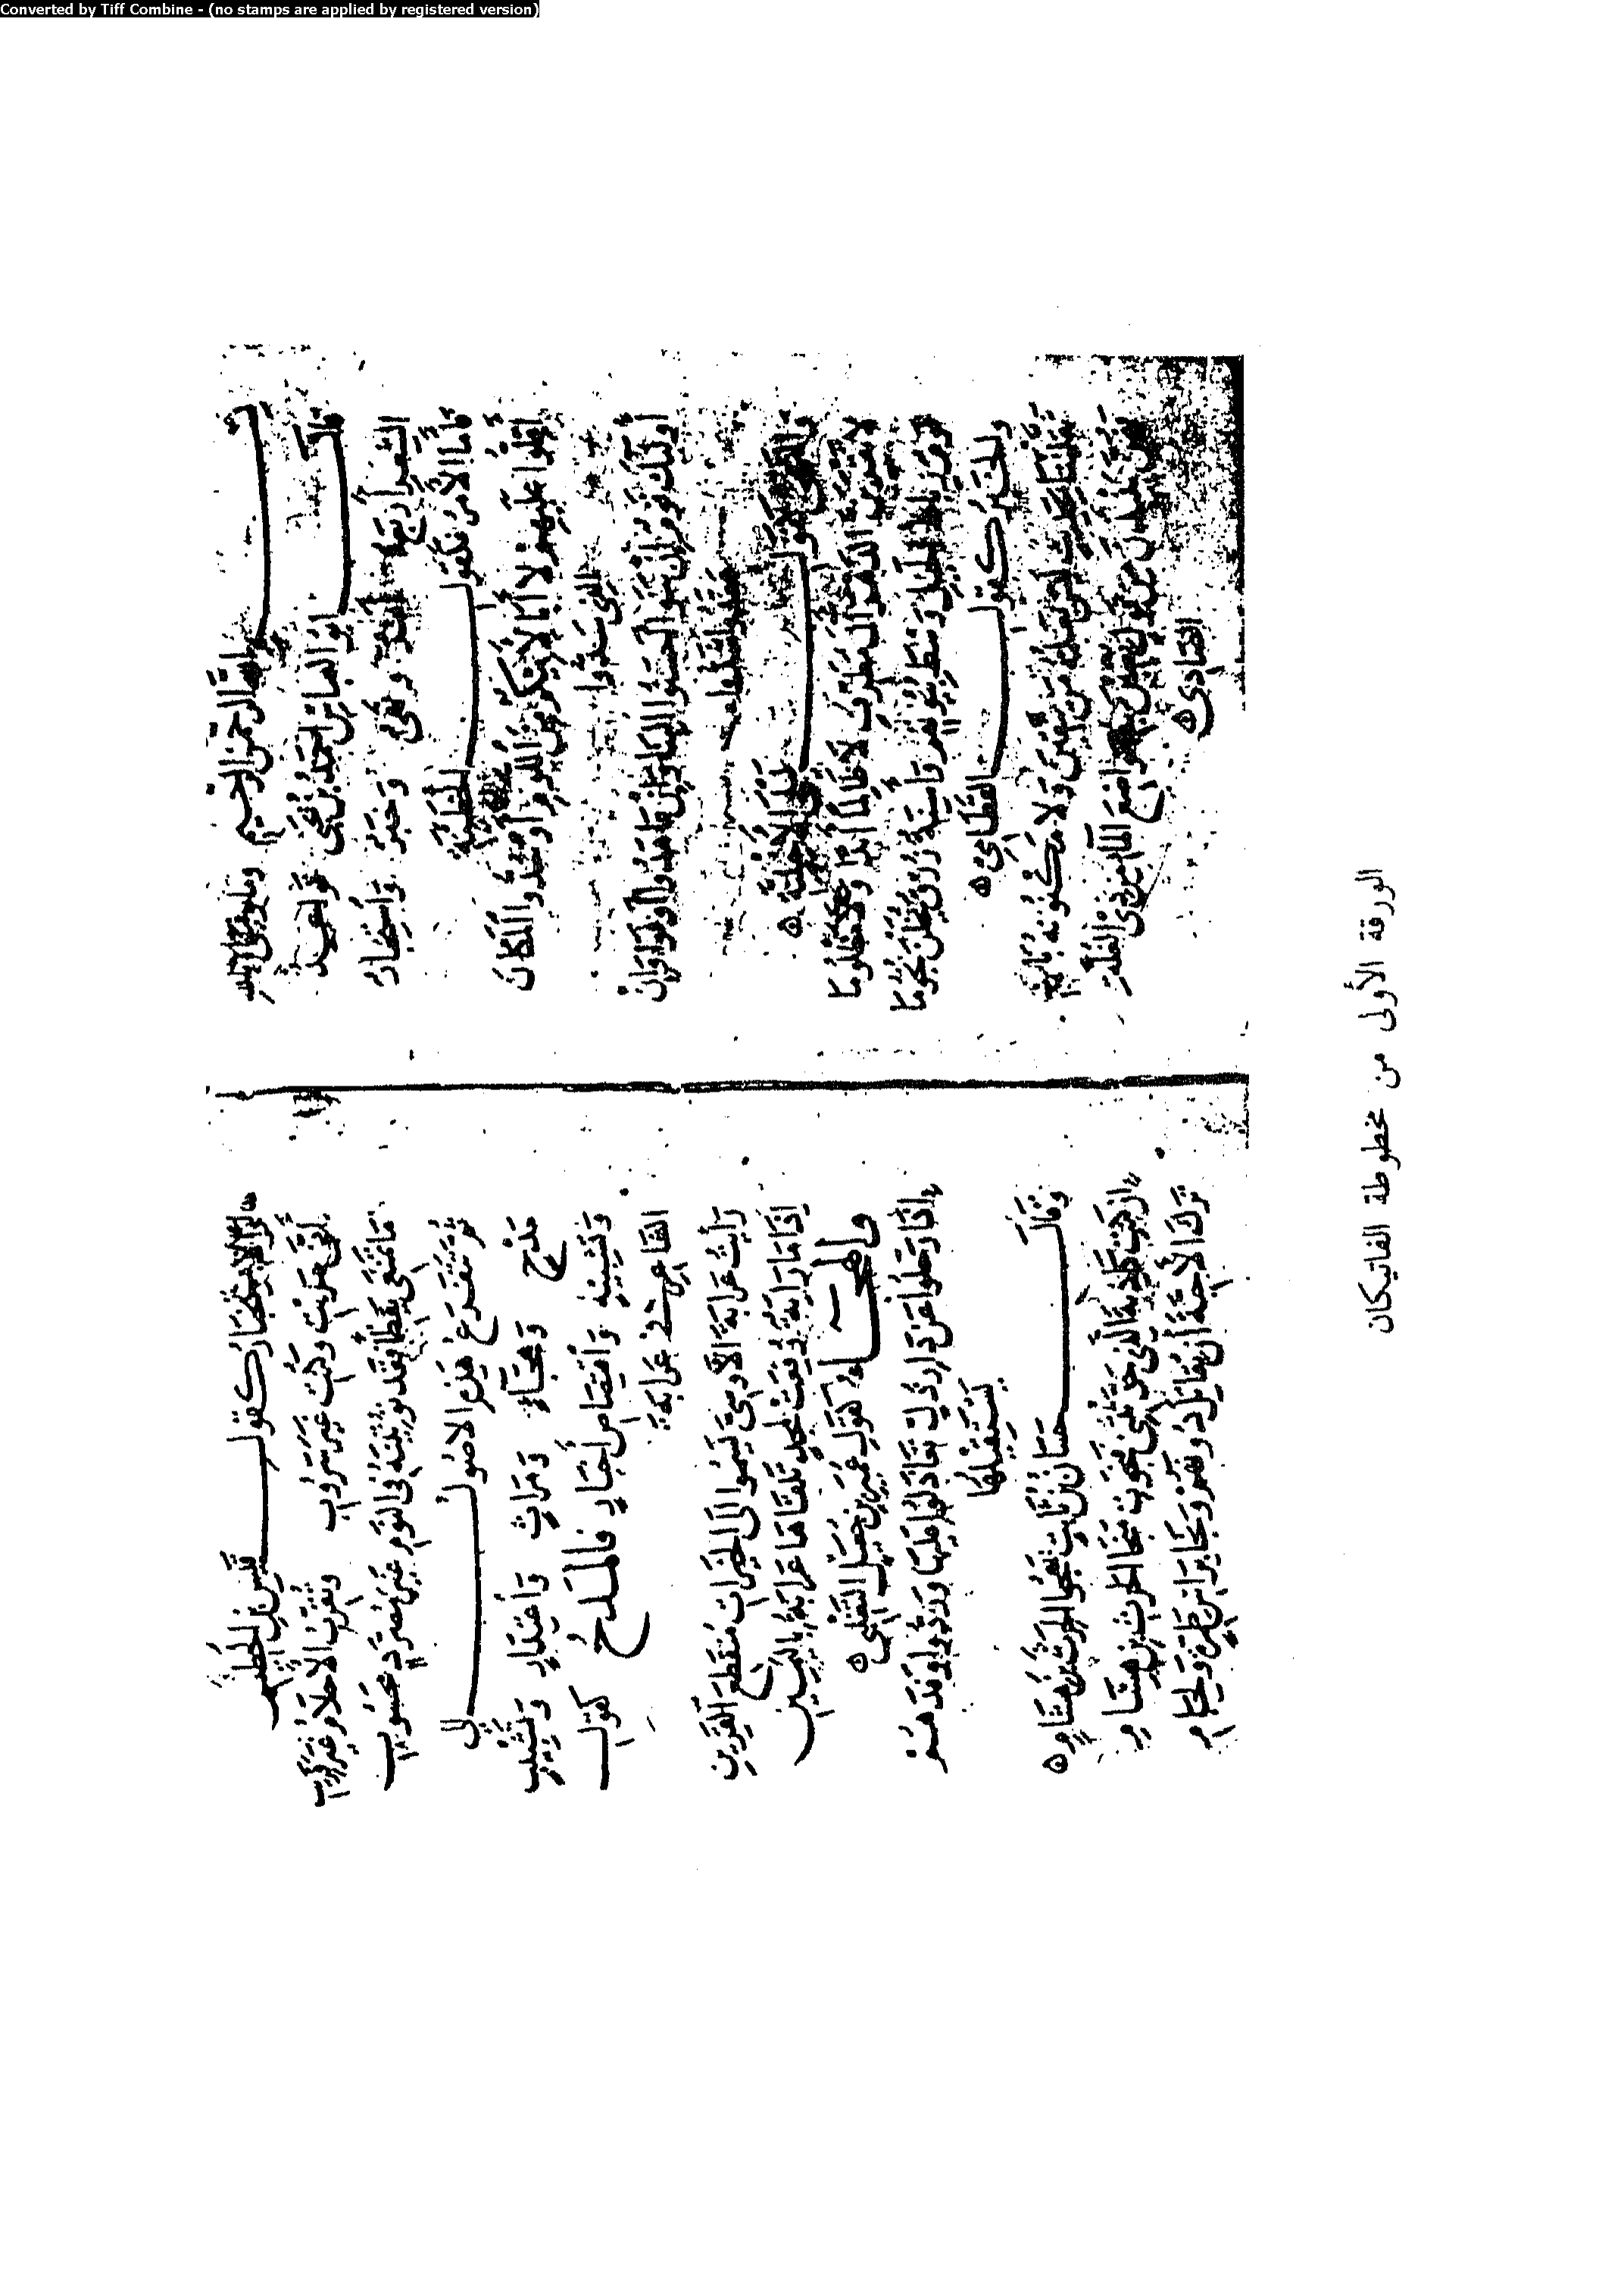 Converted by Tiff Combine - (no stamps are applied by registered version)
بسم الله الرحمن الرحيم وما توفيقي إلا بالله
قال أبو العباس أحمد بن يحيى قواعد
الشعر أربعة أمر ونهي وخبر واستخبار
فأما الأمر فكقول الحطيئة
أقلوا عليهم لا أبا لأبيكم من اللوم أو سدوا المكان
الذي سدوا
أولئك قوم إن بنوا أحسنوا البنا وإن عاهدوا أوفوا وإن
عقدوا شدوا
والنهي كقول ليلى الأخيلية
لا تقربن الدهر آل مطرف لا ظالما أبدا ولا مظلوما
قوم رباط الخيل وسط بيوتهم وأسنة زرق يخلن نجوما
والخبر كقول القطامي
يقتلننا بحديث ليس يعلمه من يتقين ولا مكنونه بادي
فهن ينبذن من قول يصبن به مواقع الماء من ذي الغلة
الصادي
والاستخبار كقول قيس بن الخطيم
أنى سربت وكنت غير سروب وتقرب الأحلام غير قريب
ما تمنعي يقظى فقد تؤتينه في النوم غير مصرد محسوب
ثم تتفرع هذه الأصول إلى
مدح وهجاء ومراث واعتذار وتشبيب
وتشبيه واقتصاص أخبار فالمدح كقول
الشماخ في عرابة
رأيت عرابة الأوسي يسموا إلى الخيرات منقطع القرين
إذا ما راية رفعت لمجد تلقاها عرابة باليمين
والهجاء كقول عمير بن جعيل التغلبي
إذا رحلوا عن دار ذل تعاذلوا عليها وردوا وفدهم
يستقيلها
وقال حسان بن ثابت يهجو الحرث بن هشام
إن كنت كاذبة الذي حدثتني فنجوت منجا الحرث بن هشام
ترك الأحبة أن يقاتل دونهم ونجا برأس طمرة ولجام
الورقة الأولى من مخطوطة الفاتيكان